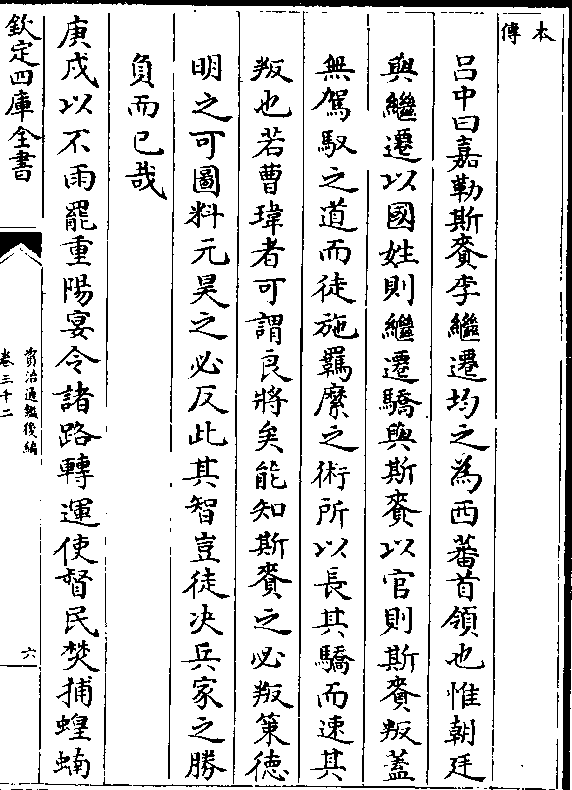 本
傳
呂中曰嘉勒斯賚李繼遷均之為西蕃首領也惟朝廷
與繼遷以國姓則繼遷驕與斯賚以官則斯賚叛蓋
無駕馭之道而徒施羈縻之術所以長其驕而速其
叛也若曹瑋者可謂良將矣能知斯賚之必叛策德
明之可圖料元昊之必反此其智豈徒决兵家之勝
負而已哉
庚戌以不雨罷重陽宴令諸路轉運使督民焚捕蝗蝻
欽定四庫全書
資治通鑑後編
卷三十二
六